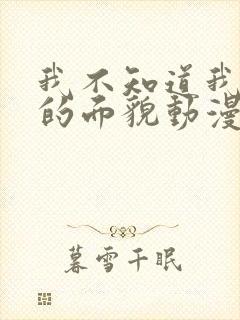 我不知道我
的而貌動漫
暮雪千眠